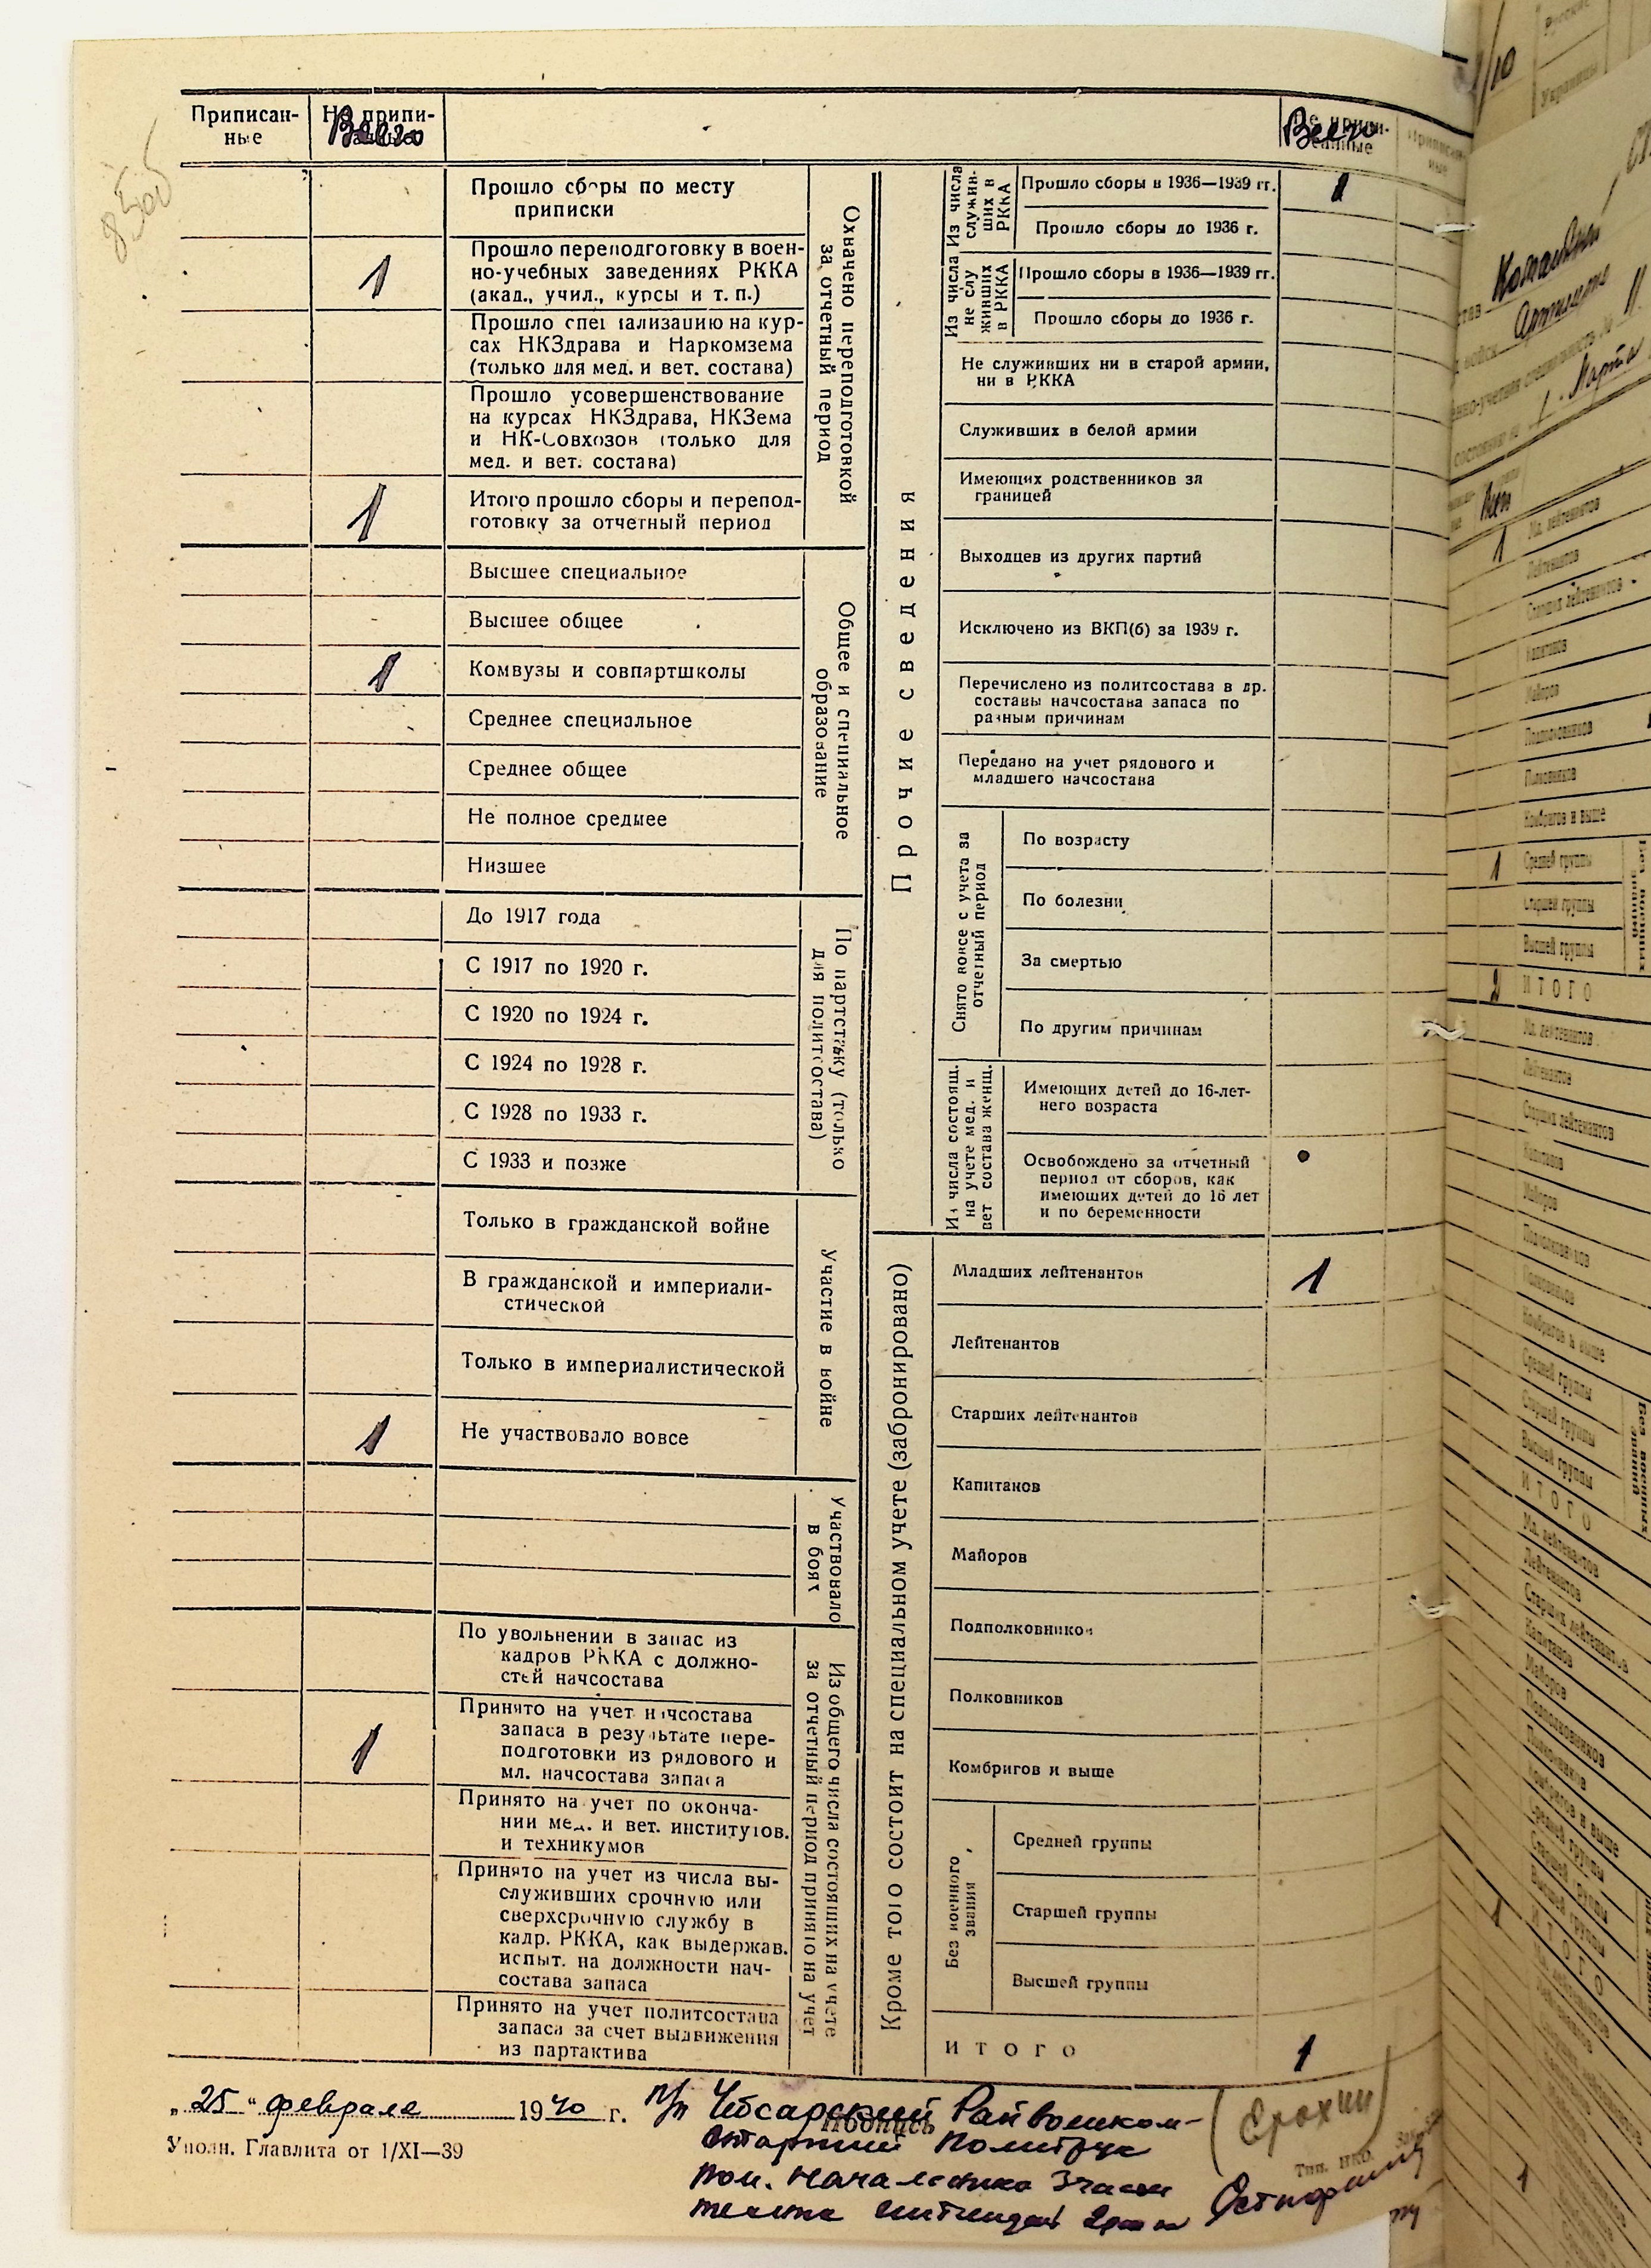 Приписан-
ные
Всего
Всего
8500
Прошло сборы по месту
приписки
Прошло переподготовку в воен-
но-учебных заведениях РККА
(акад., учил., курсы и т. п.)
1
Прошло специализацию на кур-
сах НКЗдрава и Наркомзема
(только для мед. и вет. состава)
Прошло усовершенствование
на курсах НКЗдрава, НКЗема
и НК-Совхозов (только для
мед. и вет. состава)
Итого прошло сборы и перепод-
готовку за отчетный период
1
Охвачено переподготовкой
за отчетный период
Высшее специальное
Высшее общее
Комвузы и совпартшколы
1
Среднее специальное
Среднее общее
Не полное среднее
Низшее
Общее и специальное
образование
До 1917 года
С 1917 по 1920 г.
С 1920 по 1924 г.
С 1924 по 1928 г.
С 1928 по 1933 г.
С 1933 и позже
По партстажу (только
для политсостава)
Только в гражданской войне
В гражданской и империали-
стической
Только в империалистической
Не участвовало вовсе
1
Участие в войне
Участвовало
в боях
По увольнении в запас из
кадров РККА с должно-
стей начсостава
Принято на учет начсостава
запаса в результате пере-
подготовки из рядового и
мл. начсостава запаса
1
Принято на учет по оконча-
нии мед. и вет. институтов
и техникумов
Принято на учет из числа вы-
служивших срочную или
сверхсрочную службу в
кадр. РККА, как выдержав.
испыт. на должности нач-
состава запаса
Принято на учет политсостава
запаса за счет выдвижения
из партактива
Из общего числа состоящих на учете
за отчетный период принято на учет
Прочие сведения
Из числа
служив-
ших в
РККА
Прошло сборы в 1936—1939 гг.
1
Прошло сборы до 1936 г.
Из числа
не слу
живших
в РККА
Прошло сборы в 1936—1939 гг.
Прошло сборы до 1936 г.
Не служивших ни в старой армии,
ни в РККА
Служивших в белой армии
Имеющих родственников за
границей
Выходцев из других партий
Исключено из ВКП(б) за 1939 г.
Перечислено из политсостава в др.
составы начсостава запаса по
разным причинам
Передано на учет рядового и
младшего начсостава
Снято вовсе с учета за
отчетный период
По возрасту
По болезни
За смертью
По другим причинам
Из числа состоящ.
на учете мед. и
вет. состава женщ.
Имеющих детей до 16-лет-
него возраста
Освобождено за отчетный
период от сборов, как
имеющих детей до 16 лет
и по беременности
Кроме того состоит на специальном учете (забронировано)
Младших лейтенантов
1
Лейтенантов
Старших лейтенантов
Капитанов
Майоров
Подполковников
Полковников
Комбригов и выше
Без военного
звания
Средней группы
Старшей группы
Высшей группы
ИТОГО
1
„25“ февраля 1940 г.
п/п Чебсарский Райвоенком-
Подпись
старший политрук
(Ерохин)
Уполн. Главлита от 1/XI—39
Тип. НКО.
Пом. Начальника 3 части
техник интендант 2 ранга
1/10
Русские
Украинцы
1
Мл. лейтенантов
Лейтенантов
Старших лейтенантов
Капитанов
Майоров
Подполковников
Полковников
Комбригов и выше
1
Средней группы
Старшей группы
Высшей группы
2
ИТОГО
Мл. лейтенантов
Лейтенантов
Старших лейтенантов
Капитанов
Майоров
Подполковников
Полковников
Комбригов и выше
Средней группы
Старшей группы
Высшей группы
ИТОГО
Мл. лейтенантов
Лейтенантов
Старших лейтенантов
Капитанов
Майоров
Подполковников
Полковников
Комбригов и выше
Средней группы
Старшей группы
Высшей группы
1
ИТОГО